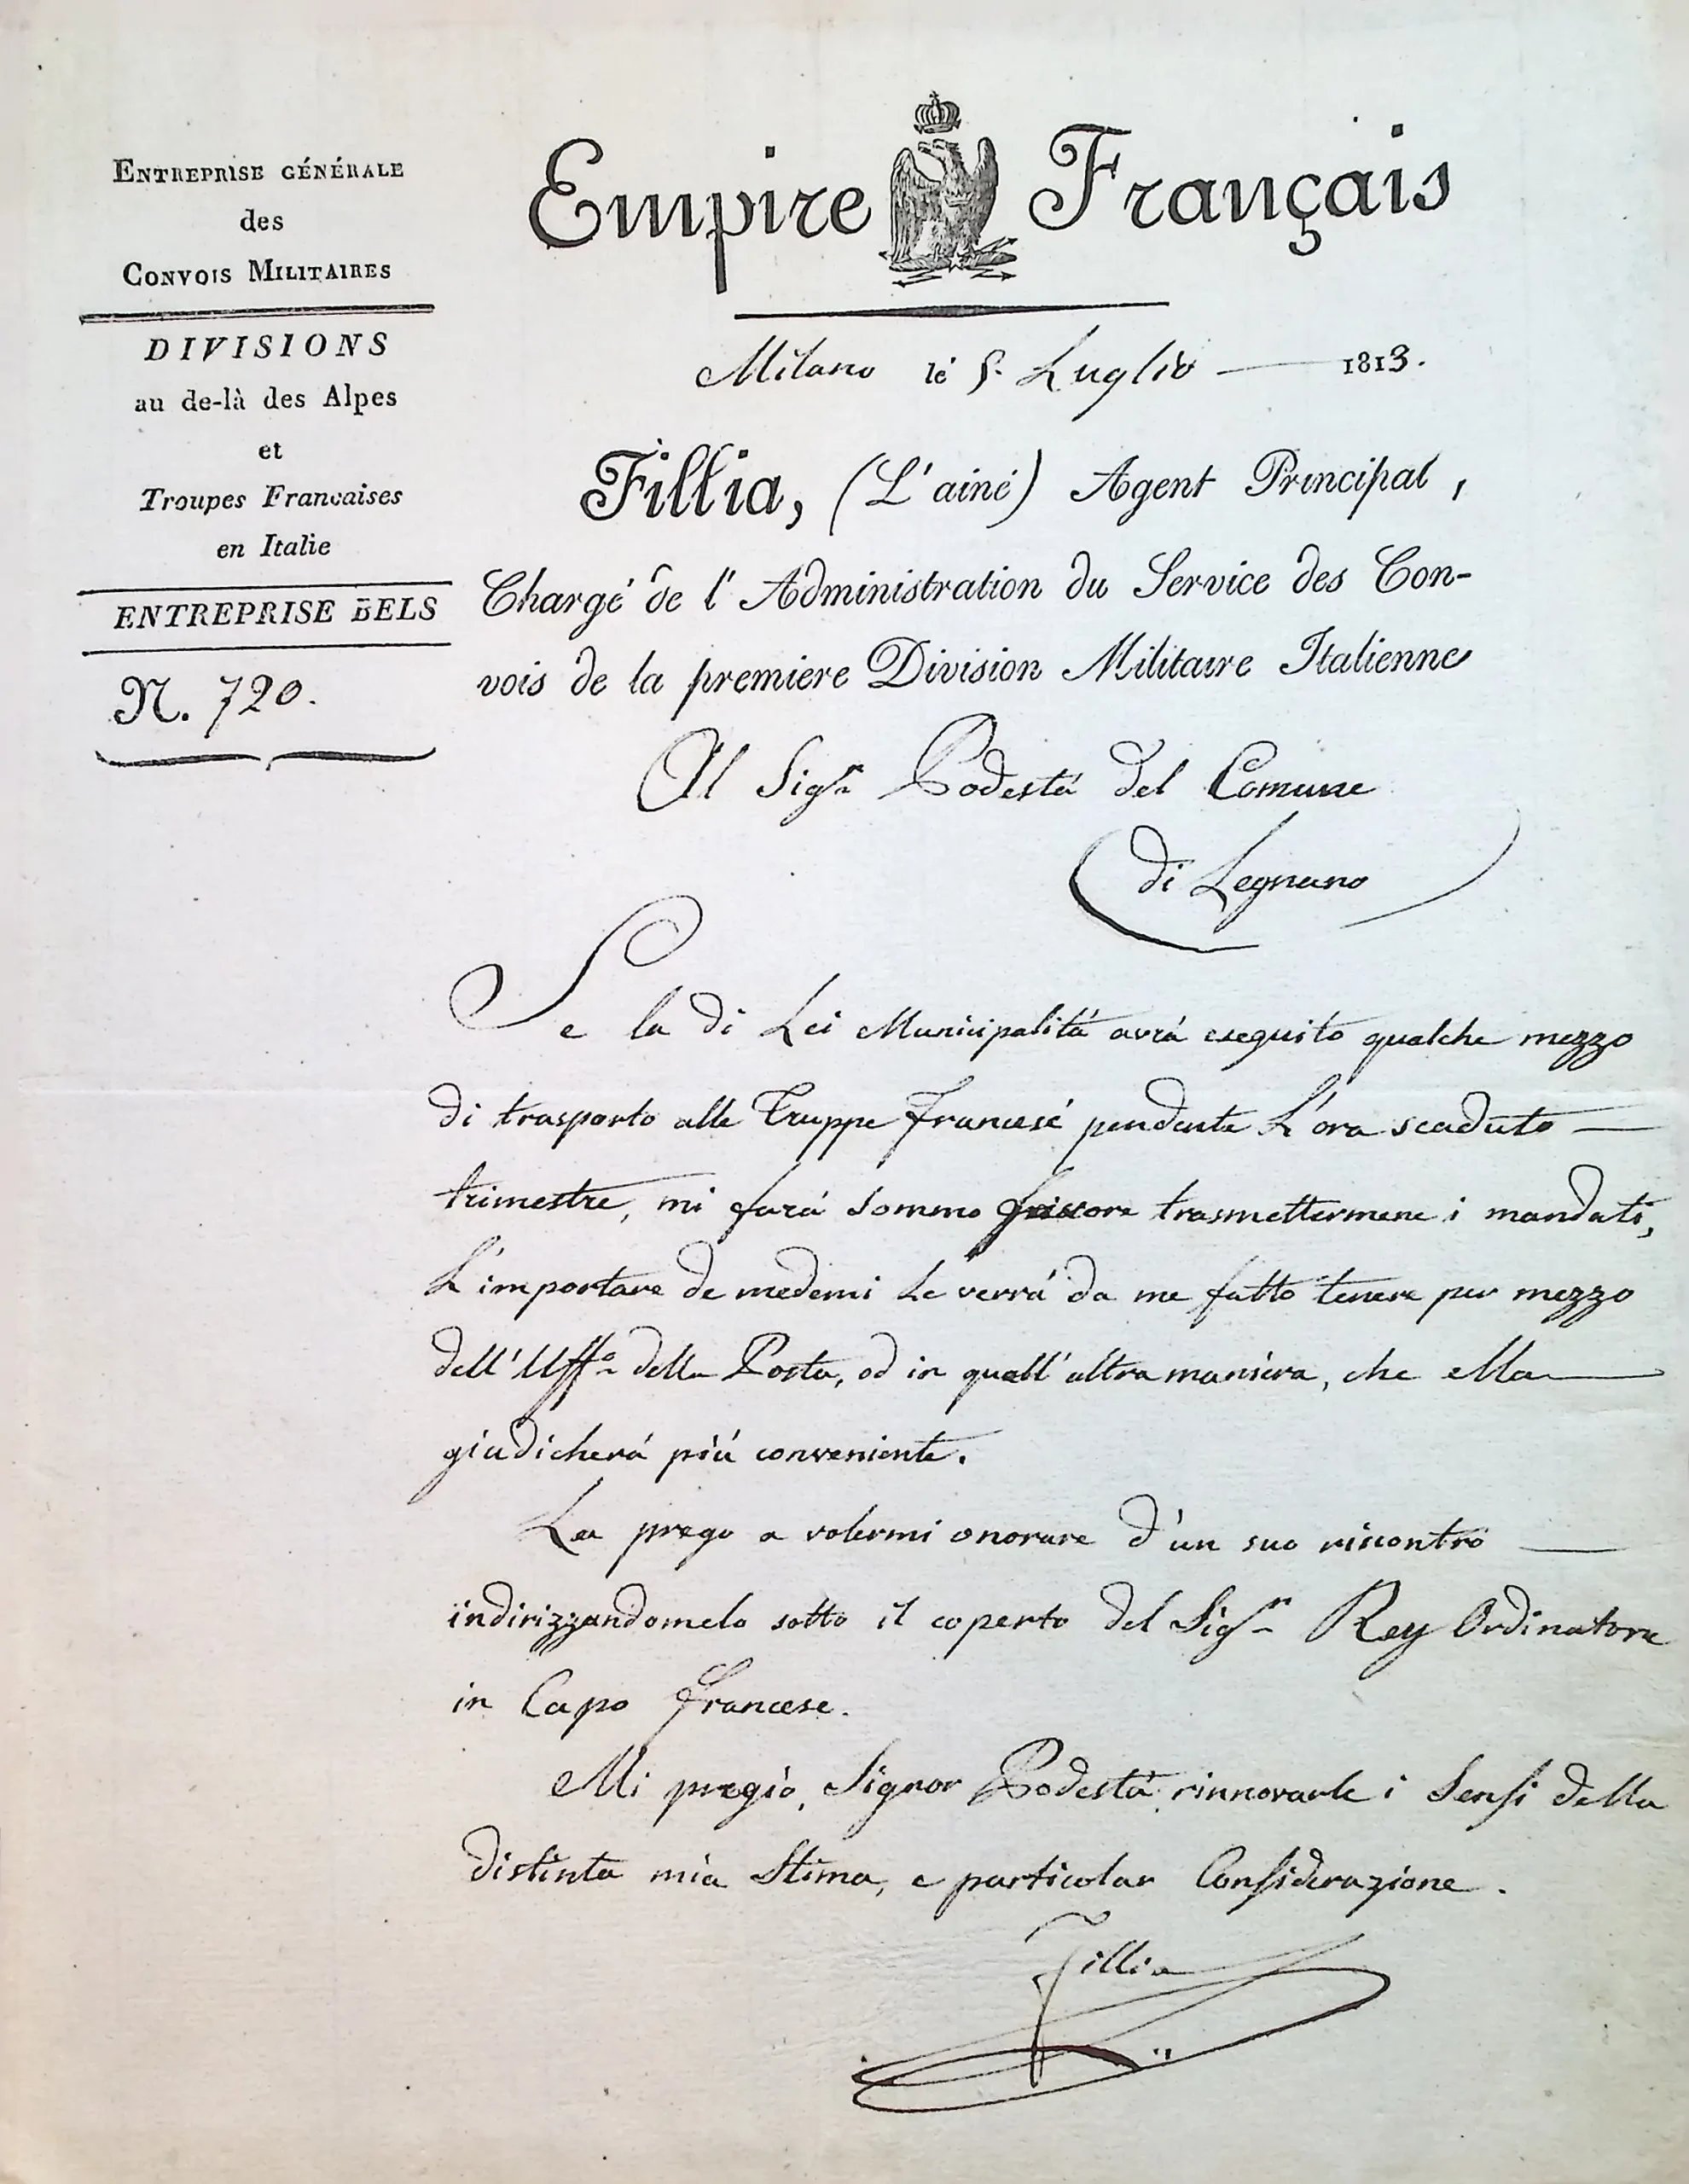 ENTREPRISE GÉNÉRALE
des
CONVOIS MILITAIRES
DIVISIONS
au de-là des Alpes
et
Troupes Francaises
en Italie
ENTREPRISE BELS
N. 720.
Empire Français
Milano le 5. Luglio 1813.
Fillia, (L'ainé) Agent Principal,
Chargé de l'Administration du Service des Con-
vois de la premiere Division Militaire Italienne
Al Sigr. Podestá del Comune
di Legnano
Se la di Lei Municipalitá avrá eseguito qualche mezzo
di trasporto alle Truppe francesi pendente L'ora scaduto
trimestre, mi fará Sommo trasmettermene i mandati,
L'importare de medemi Le verrá da me fatto tenere per mezzo
dell'Uffo. della Posta, od in quall'altra maniera, che ella
giudicherá piú conveniente.
La prego a volermi onorare d'un suo riscontro
indirizzandomelo sotto il coperto del Sigr. Rey Ordinatore
in Capo francese.
Mi pregio, Signor Podestá, rinnovarle i Sensi della
distinta mia Stima, e particolar Considerazione.
Fillia